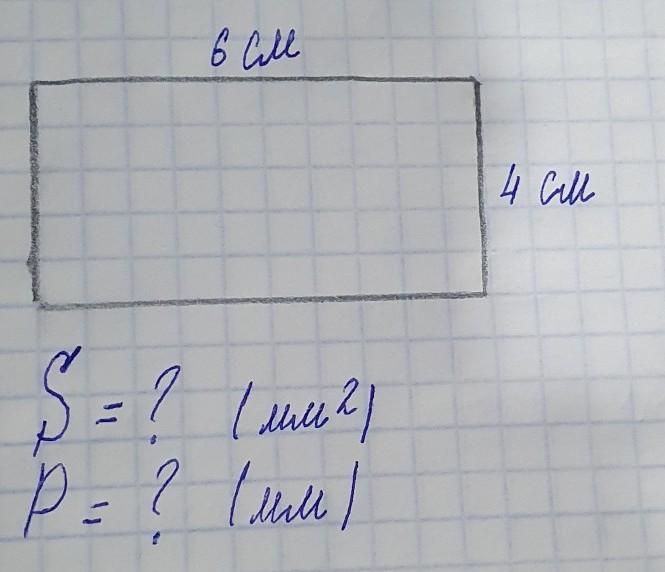 6 см
4 см
S = ? (мм²)
P = ? (мм)